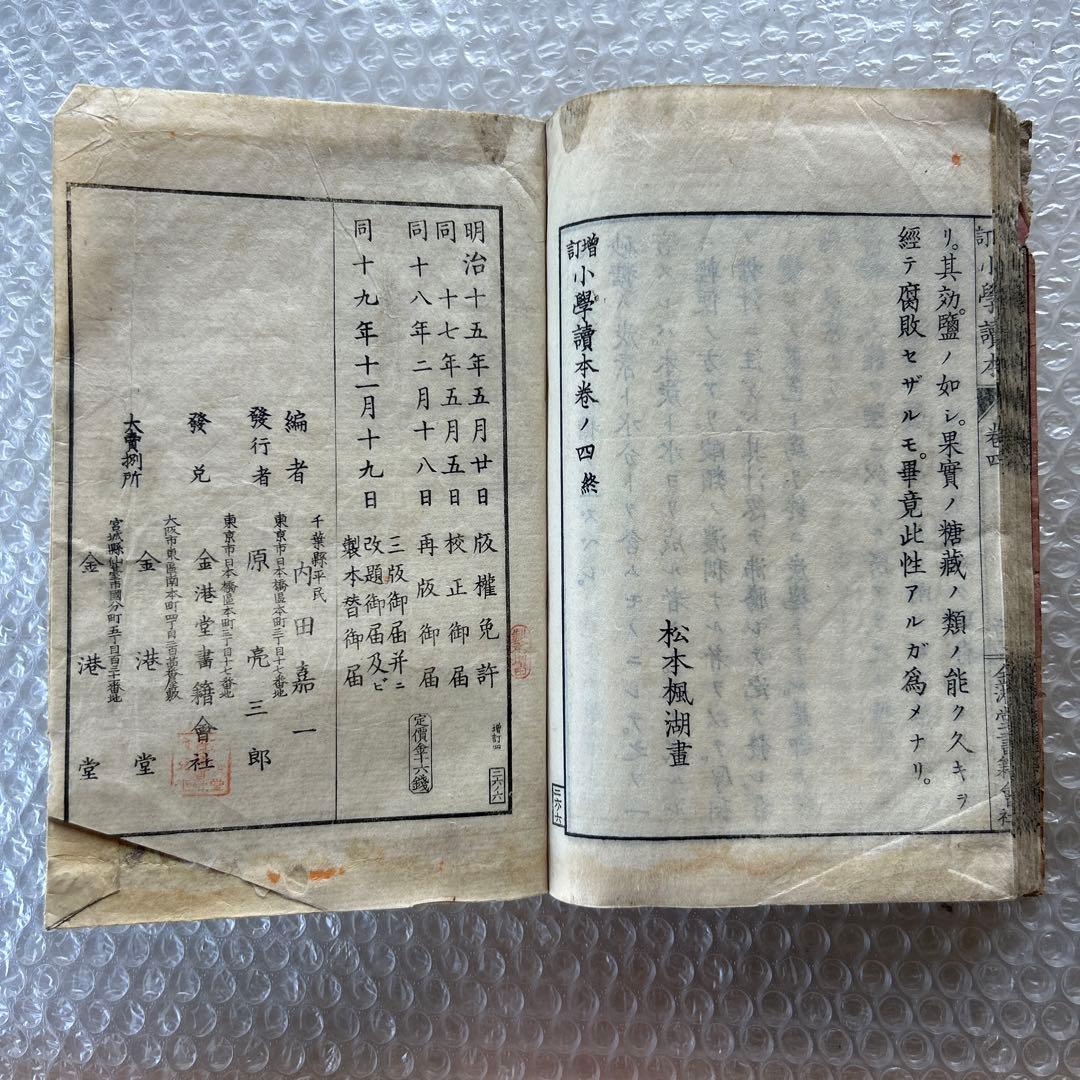 訂小學讀本
卷四
金港堂書籍會社
リ。其効。鹽ノ如シ。果實ノ糖藏ノ類ノ能ク久キヲ
經テ腐敗セザルモ。畢竟此性アルガ爲メナリ。
松本楓湖畫
増訂小學讀本卷ノ四終
三六ノ六
増訂四
三六ノ六
明治十五年五月廿日版權免許
同十七年五月五日校正御届
同十八年二月十八日再版御届
定價金十六錢
同十九年十一月十九日
三版御届并ニ
改題御届及ビ
製本替御届
編者
千葉縣平民
内田嘉一
發行者
東京市日本橋區本町三丁目十七番地
原亮三郎
發兌
東京市日本橋區本町三丁目十七番地
金港堂書籍會社
大賣捌所
大阪市東區南本町四丁目
金港堂
宮城縣仙臺市國分町五丁目百三十番地
金港堂